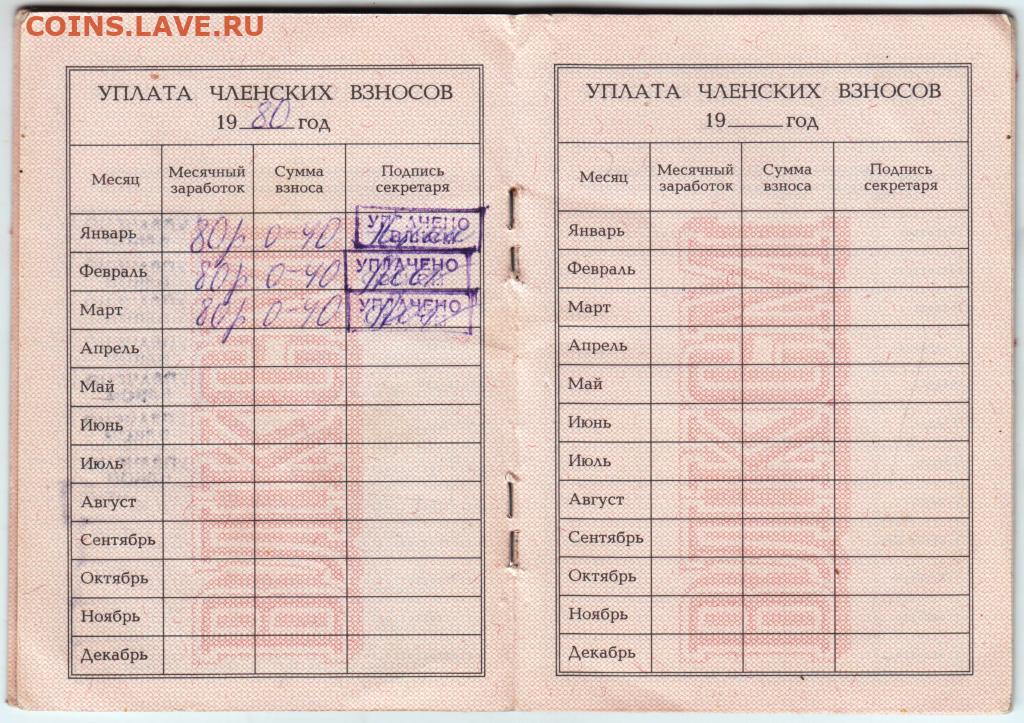 COINS.LAVE.RU
УПЛАТА ЧЛЕНСКИХ ВЗНОСОВ
19 80 год
Месяц Месячный заработок Сумма взноса Подпись секретаря
Январь 80р 0-40 УПЛАЧЕНО ВЛКСМ
Февраль 80р 0-40 УПЛАЧЕНО
Март 80р 0-40 УПЛАЧЕНО
Апрель
Май
Июнь
Июль
Август
Сентябрь
Октябрь
Ноябрь
Декабрь
ВЛКСМ
УПЛАТА ЧЛЕНСКИХ ВЗНОСОВ
19 год
Месяц Месячный заработок Сумма взноса Подпись секретаря
Январь
Февраль
Март
Апрель
Май
Июнь
Июль
Август
Сентябрь
Октябрь
Ноябрь
Декабрь
ВЛКСМ